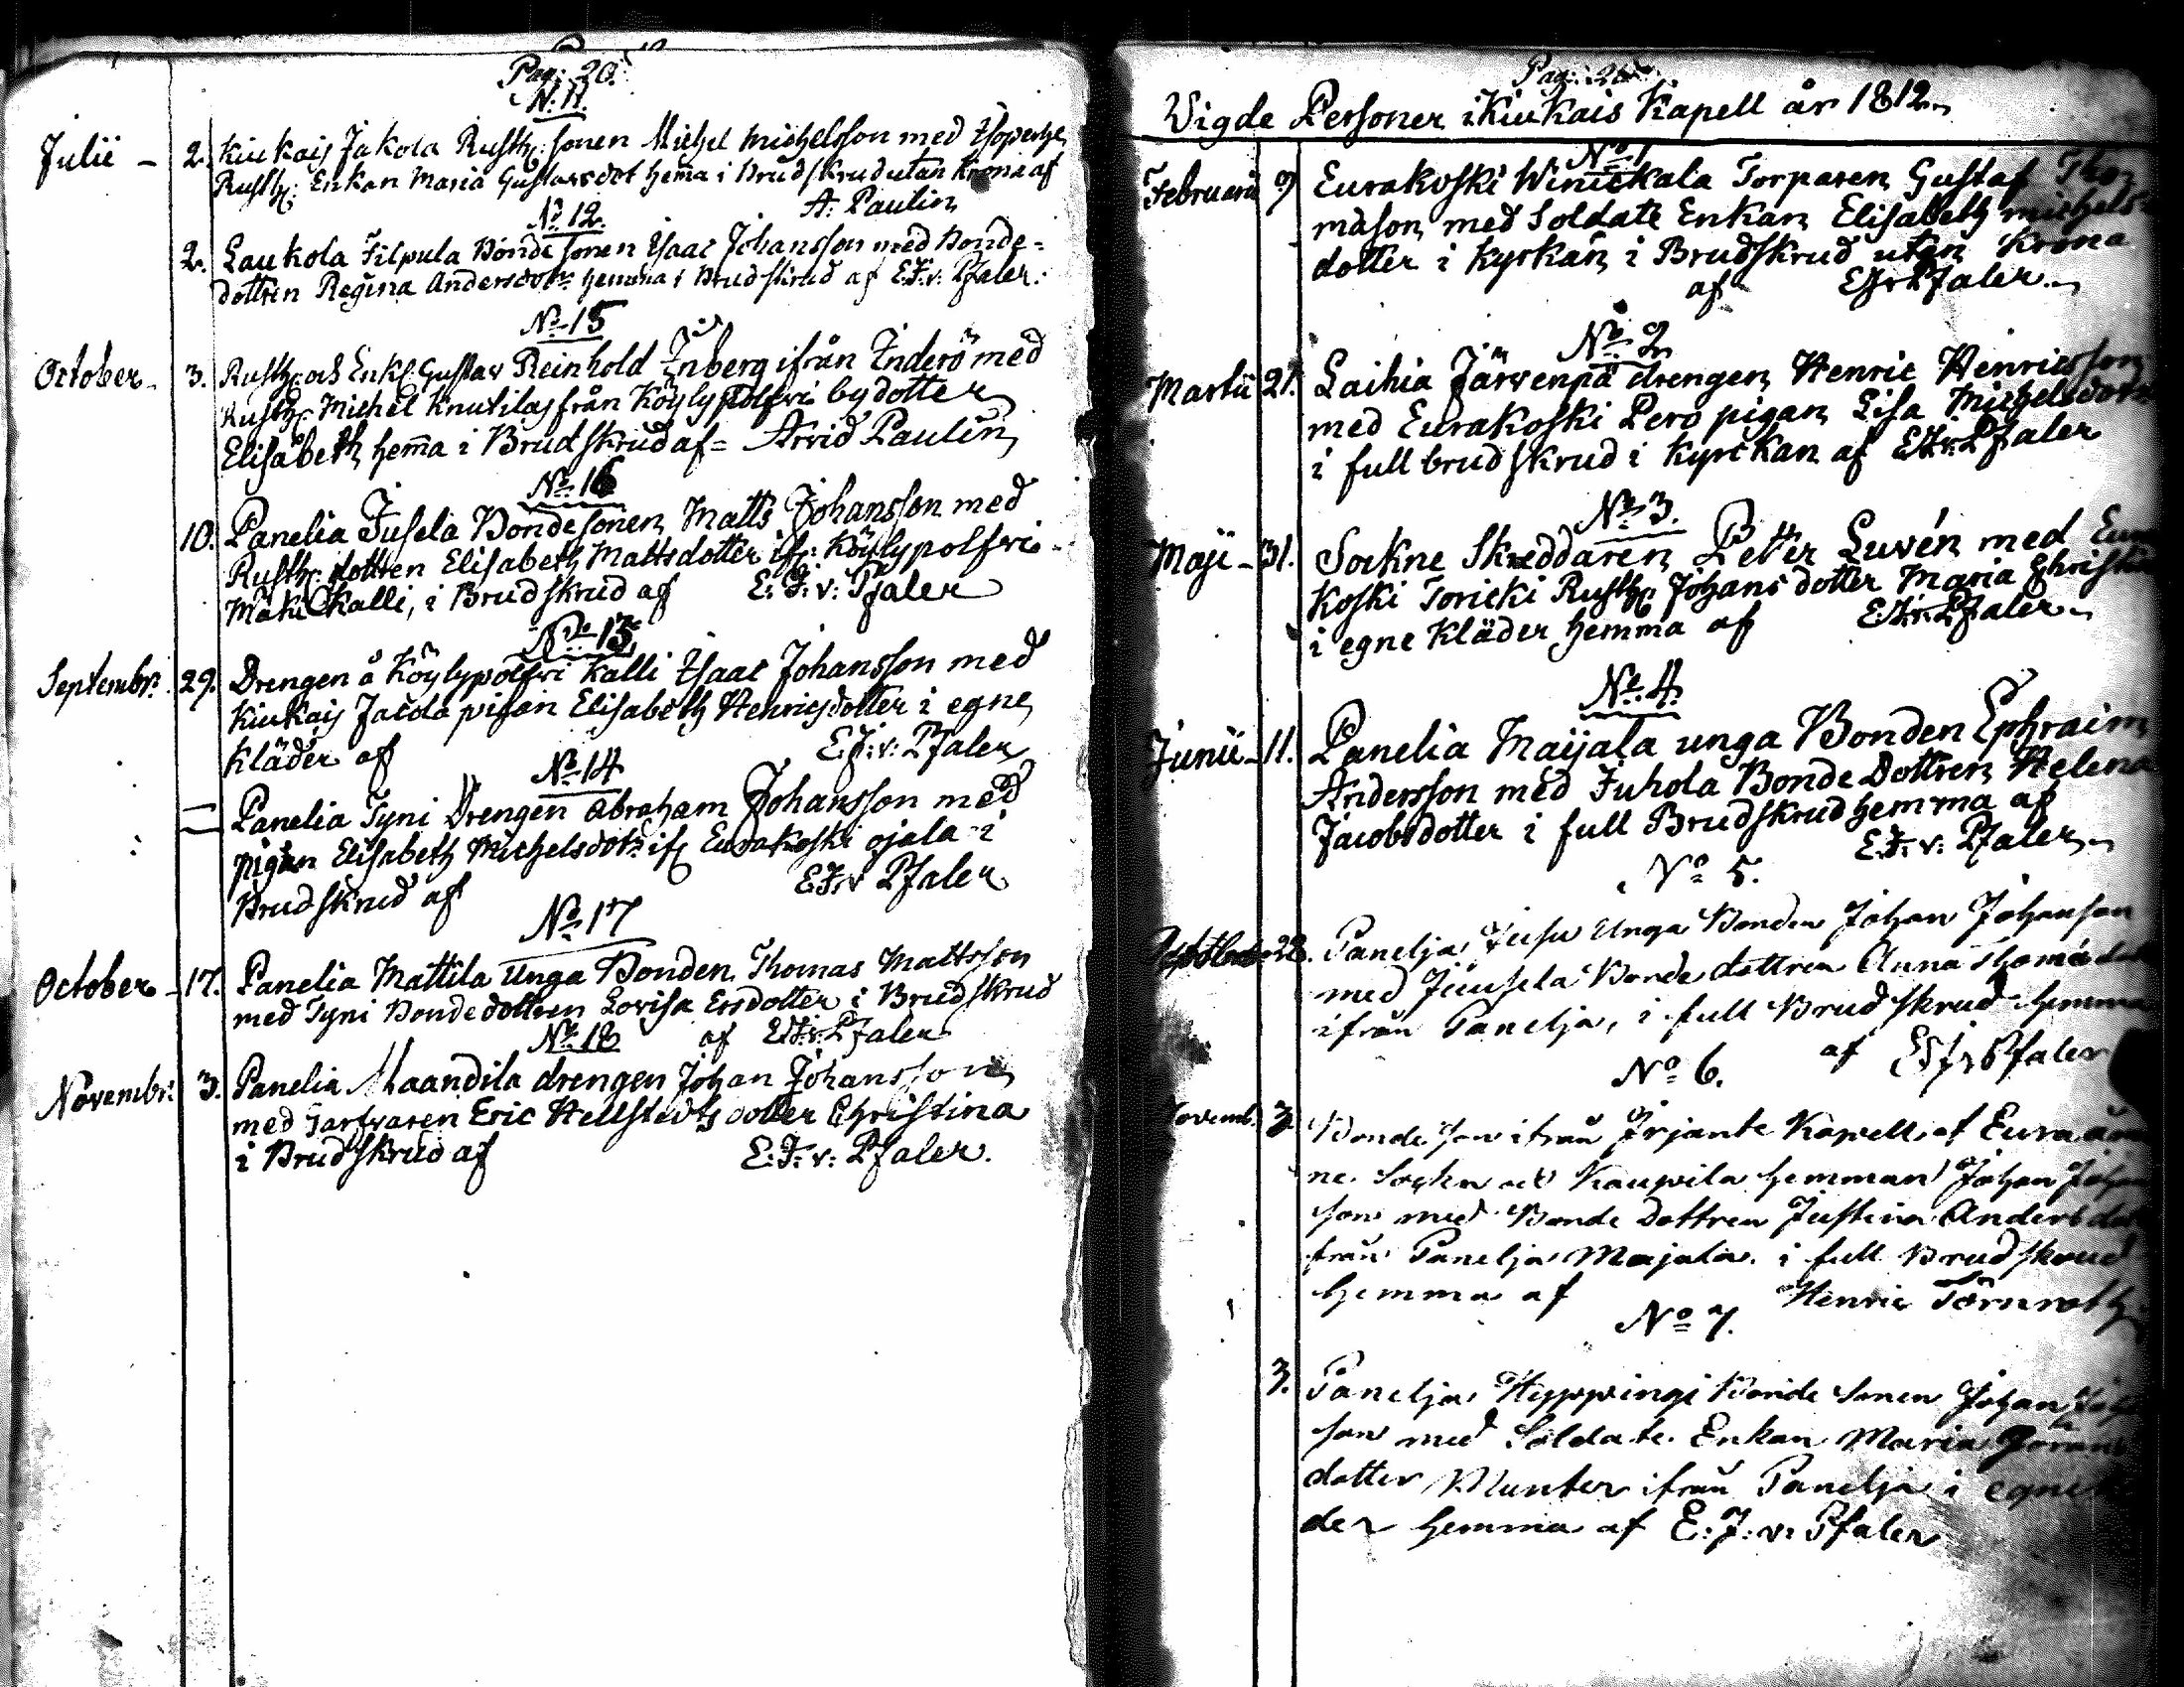 Pag: 20.
N: 11.
Julii - 2. Kiukais Jakola Rusth: sonen Michel Michelsson med
Rusth: Enkan Maria Gustavsdot hema i Brudskrud utan Krona af
A: Paulin
No 12.
2. Laukola Filpula Bonde sonen Isaac Johansson med Bonde-
dottren Regina Andersdotr hemma i Brudskrud af E.J.v: Pfaler.
No 15
October - 3. Rusth: och Enkl: Gustav Reinhold Inberg ifrån Inderö med
Rusth: Michel Knutilas från Köylypolfvi by dotter
Elisabeth hema i Brudskrud af = Arvid Paulin
No 16
10. Panelia Jusela Bondesonen Matts Johansson med
Rusth: dottren Elisabeth Mattsdotter if: Köylypolfvi
Mäki Kalli, i Brudskrud af E: J: v: Pfaler
No 13
Septembr: 29. Drengen å Köylypolfvi Kalli Isaac Johansson med
Kiukais Jacola pigan Elisabeth Henricsdotter i egne
Kläder af E.J: v: Pfaler
No 14
Panelia Tyni Drengen Abraham Johansson med
pigan Elisabeth Michelsdotr if: Eurakoski ojala i
Brudskrud af E.J.v Pfaler
No 17
October - 17. Panelia Mattila Unga Bonden Thomas Mattsson
med Tyni Bondedottren Lovisa Ersdotter i Brudskrud
No 18 af E.J.v. Pfaler
Novembr: 3. Panelia Maandila drengen Johan Johansson
med Garfvaren Eric Hellstedts dotter Christina
i Brudskrud af E: J: v: Pfaler.
Pag:
Vigde Personer i Kiukais Kapell år 1812.
No 1
Februarii 9 Eurakoski Winickala Torparen Gustaf Tho
mason med Soldate Enkan Elisabeth Michels-
dotter i Kyrkan i Brudskrud utan Krona
af E.J.v Pfaler.
No 2
Martii 21. Laihia Järvenpä drengen Henric Henricsson
med Eurakoski Pero pigan Lisa Michelsdotr
i full brudskrud i Kyrckan af E.J.v. Pfaler
No 3.
Maji - 31. Sockne Skreddaren Peter Luvén med Eura
Koski Toricki Rusth: Johans dotter Maria Christi
i egne Kläder hemma af E.J.v. Pfaler.
No 4.
Junii - 11. Panelia Maijala unga Bonden Ephraim
Andersson med Juhola Bonde Dottren Helena
Jacobsdotter i full Brudskrud hemma af
E.J. v: Pfaler
No 5.
28. Panelja Jusu Unga Bonden Johan Johanson
med Juusela Bonde dottren Anna Thomä
ifrån Panelja, i full Brudskrud hemma
af E J v Pfaler
No 6.
Novemb. 3 Bonde son ifrån Irjante Kapell af Eura
ne. Sockn och Kaupila hemman Johan Johan
son med Bonde Dottren Justina Anders
från Panelja Majala. i full Brudskrud
hemma af Henric Törnroth
No 7.
3. Panelja Heppingi Bonde sonen Johan
son med Soldate Enkan Maria Görans
dotter Munter ifrån Panelja i egne
der hemma af E: J: v: Pfaler